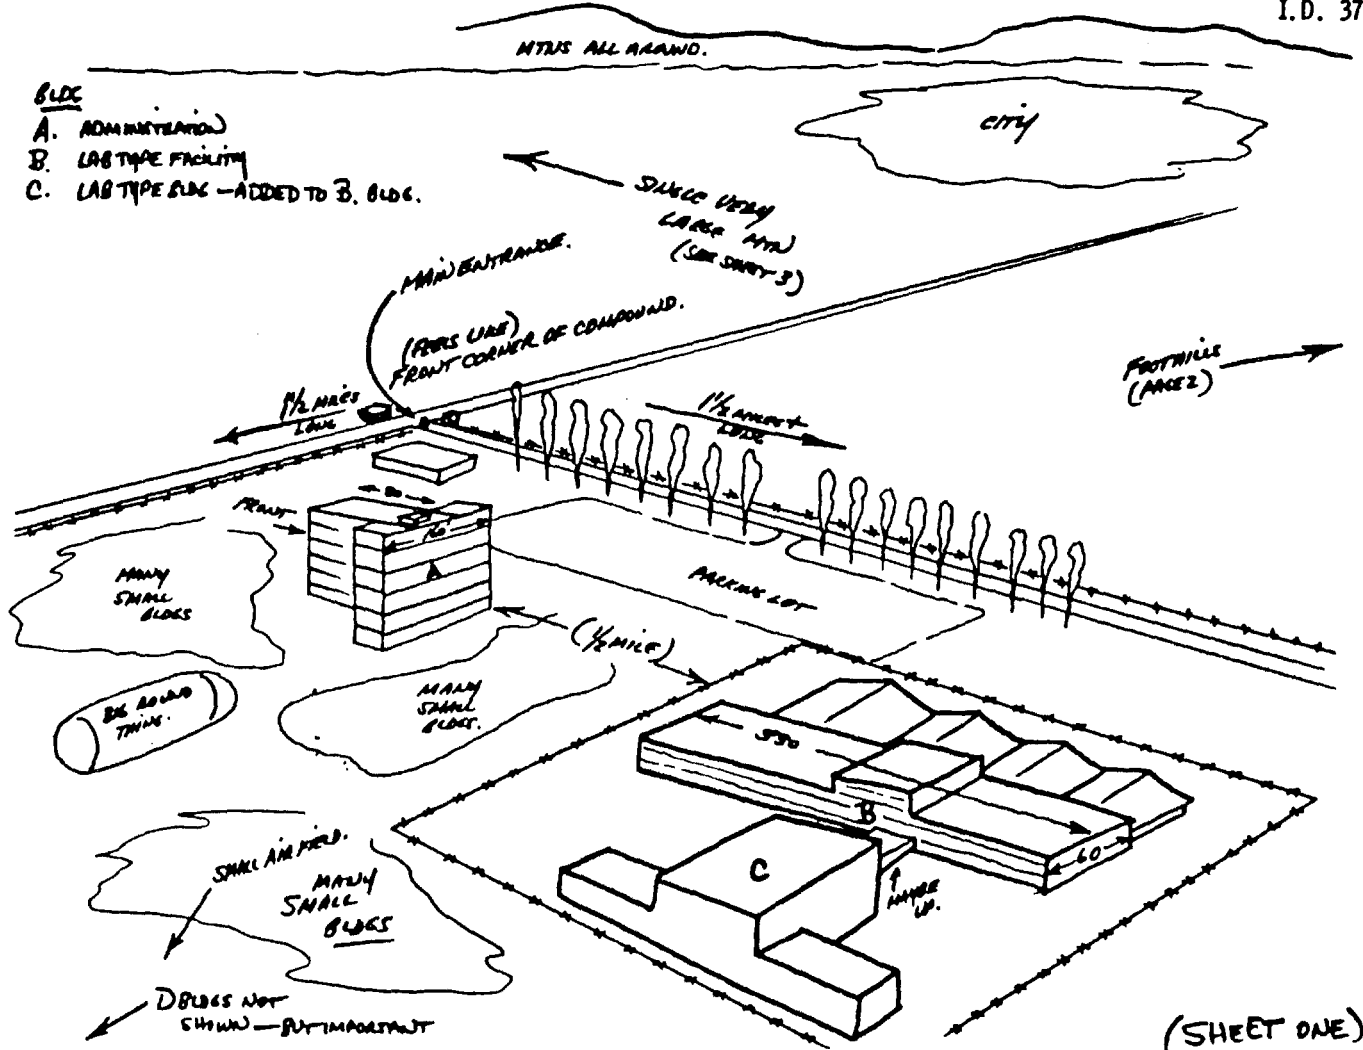 I.D. 37
MTNS ALL AROUND.
BLDG
A. ADMINISTRATION
B. LAB TYPE FACILITY
C. LAB TYPE BLDG — ADDED TO B. BLDG.
CITY
SINGLE VERY
LARGE MTN
(SEE SHEET 3)
MAIN ENTRANCE.
(FEELS LIKE)
FRONT CORNER OF COMPOUND.
FOOTHILLS
(PAGE 2)
1 1/2 MILES
LONG
1 1/2 MILES +
LONG
FRONT
80
A
MANY
SMALL
BLDGS
PARKING LOT
(1/2 MILE)
BIG ROUND
THING.
MANY
SMALL
BLDGS.
550
B
60
C
MAYBE
UP.
SMALL AIRFIELD.
MANY
SMALL
BLDGS
D BLDGS NOT
SHOWN — BUT IMPORTANT
(SHEET ONE)